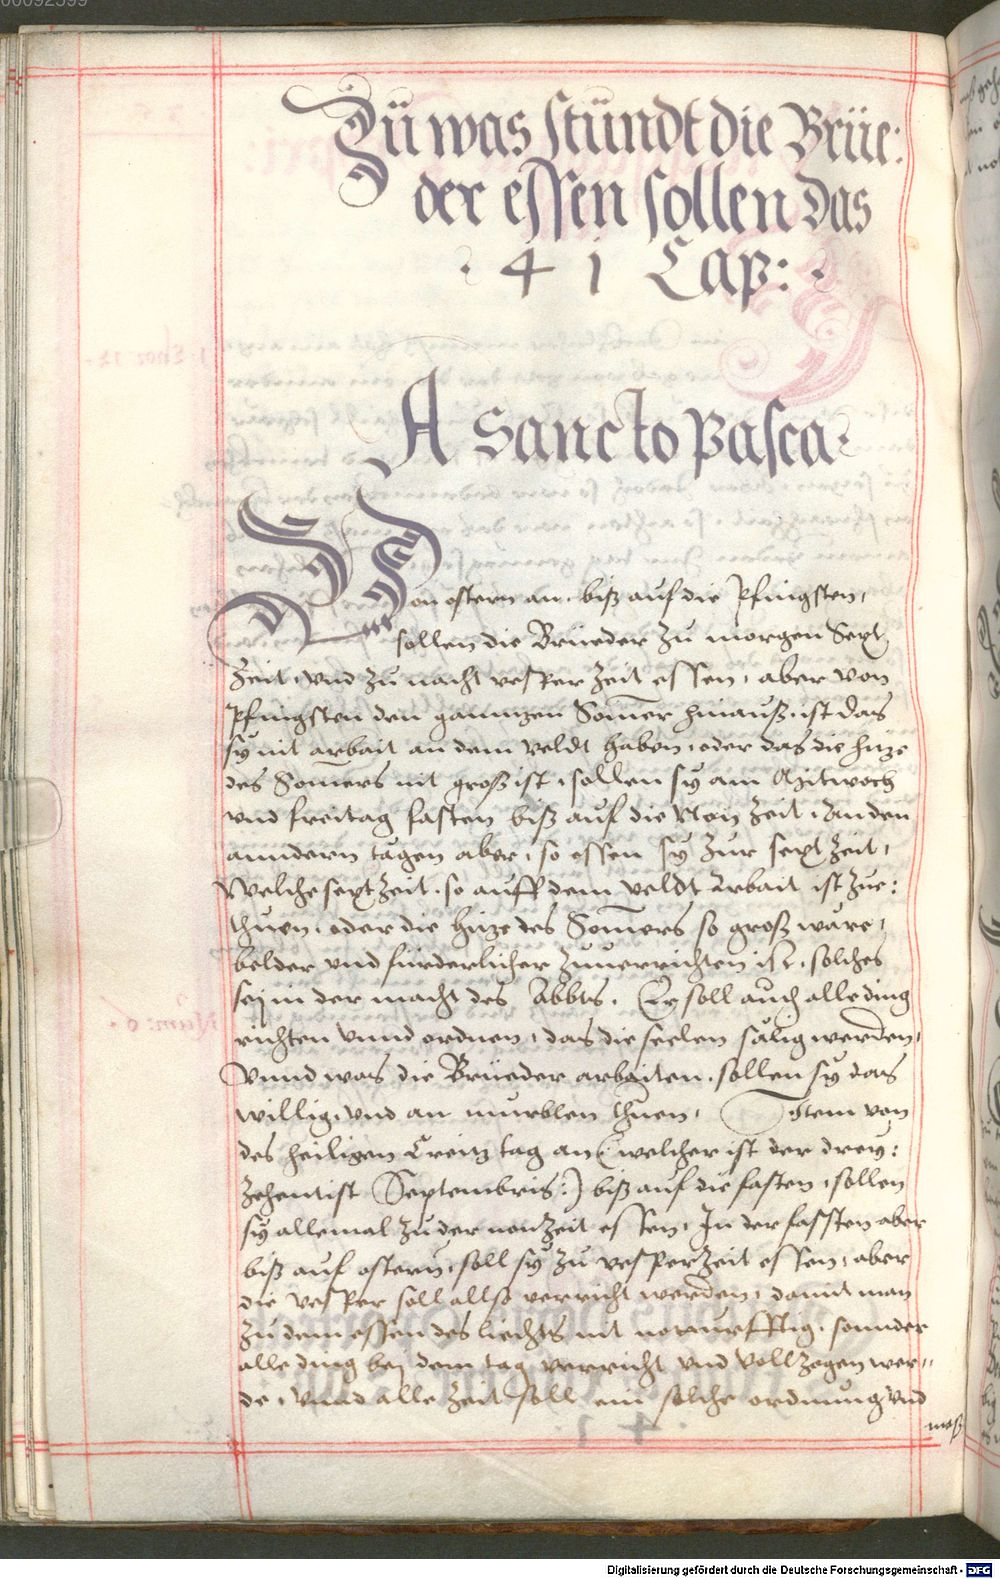 00092599
Zů was stündt die Brüe:
der essen sollen das
· 4 1 Cap: ·
A sancto Pasca·
Von ostern an, biß auf die Pfingsten,
sollen die Brüeder zu morgen Sext
Zeit, vnd zu nacht vesper Zeit essen, aber von
Pfingsten den ganntzen Somer hinauß, ist das
sy nit arbait an dem veldt haben, oder das die hitze
des Somers nit groß ist, sollen sy am Mitwoch
vnd freitag fasten biß auf die Non Zeit, an den
anndern tagen aber, so essen sy zur sext Zeit,
Welche sext Zeit, so auff dem veldt Arbait ist zue:
thuen, oder die hitze des Somers so groß wäre,
belder vnd fürderlicher zuuerrichten ist, solches
sey in der macht des Abbts. Er soll auch alle ding
richten vnnd ordnen, das die seelen sälig werden,
Vnnd was die Brüeder arbaiten, sollen sy das
willig, vnd an murblen thuen, Item von
des heiligen Creitz tag an (welcher ist der drey:
zehentist Septembris:) biß auf die fasten, sollen
sy allemal zu der non Zeit essen, In der fassten aber
biß auf ostern, soll sy zu vesper Zeit essen, aber
die vesper soll allso verricht werden, damit man
zu dem essen des liechts nit notturfftig, sonnder
alle ding bey dem tag verricht vnd vollzogen wer:
de, Vnnd alle Zeit soll ein solche ordnung vnd
maß
Digitalisierung gefördert durch die Deutsche Forschungsgemeinschaft - DFG